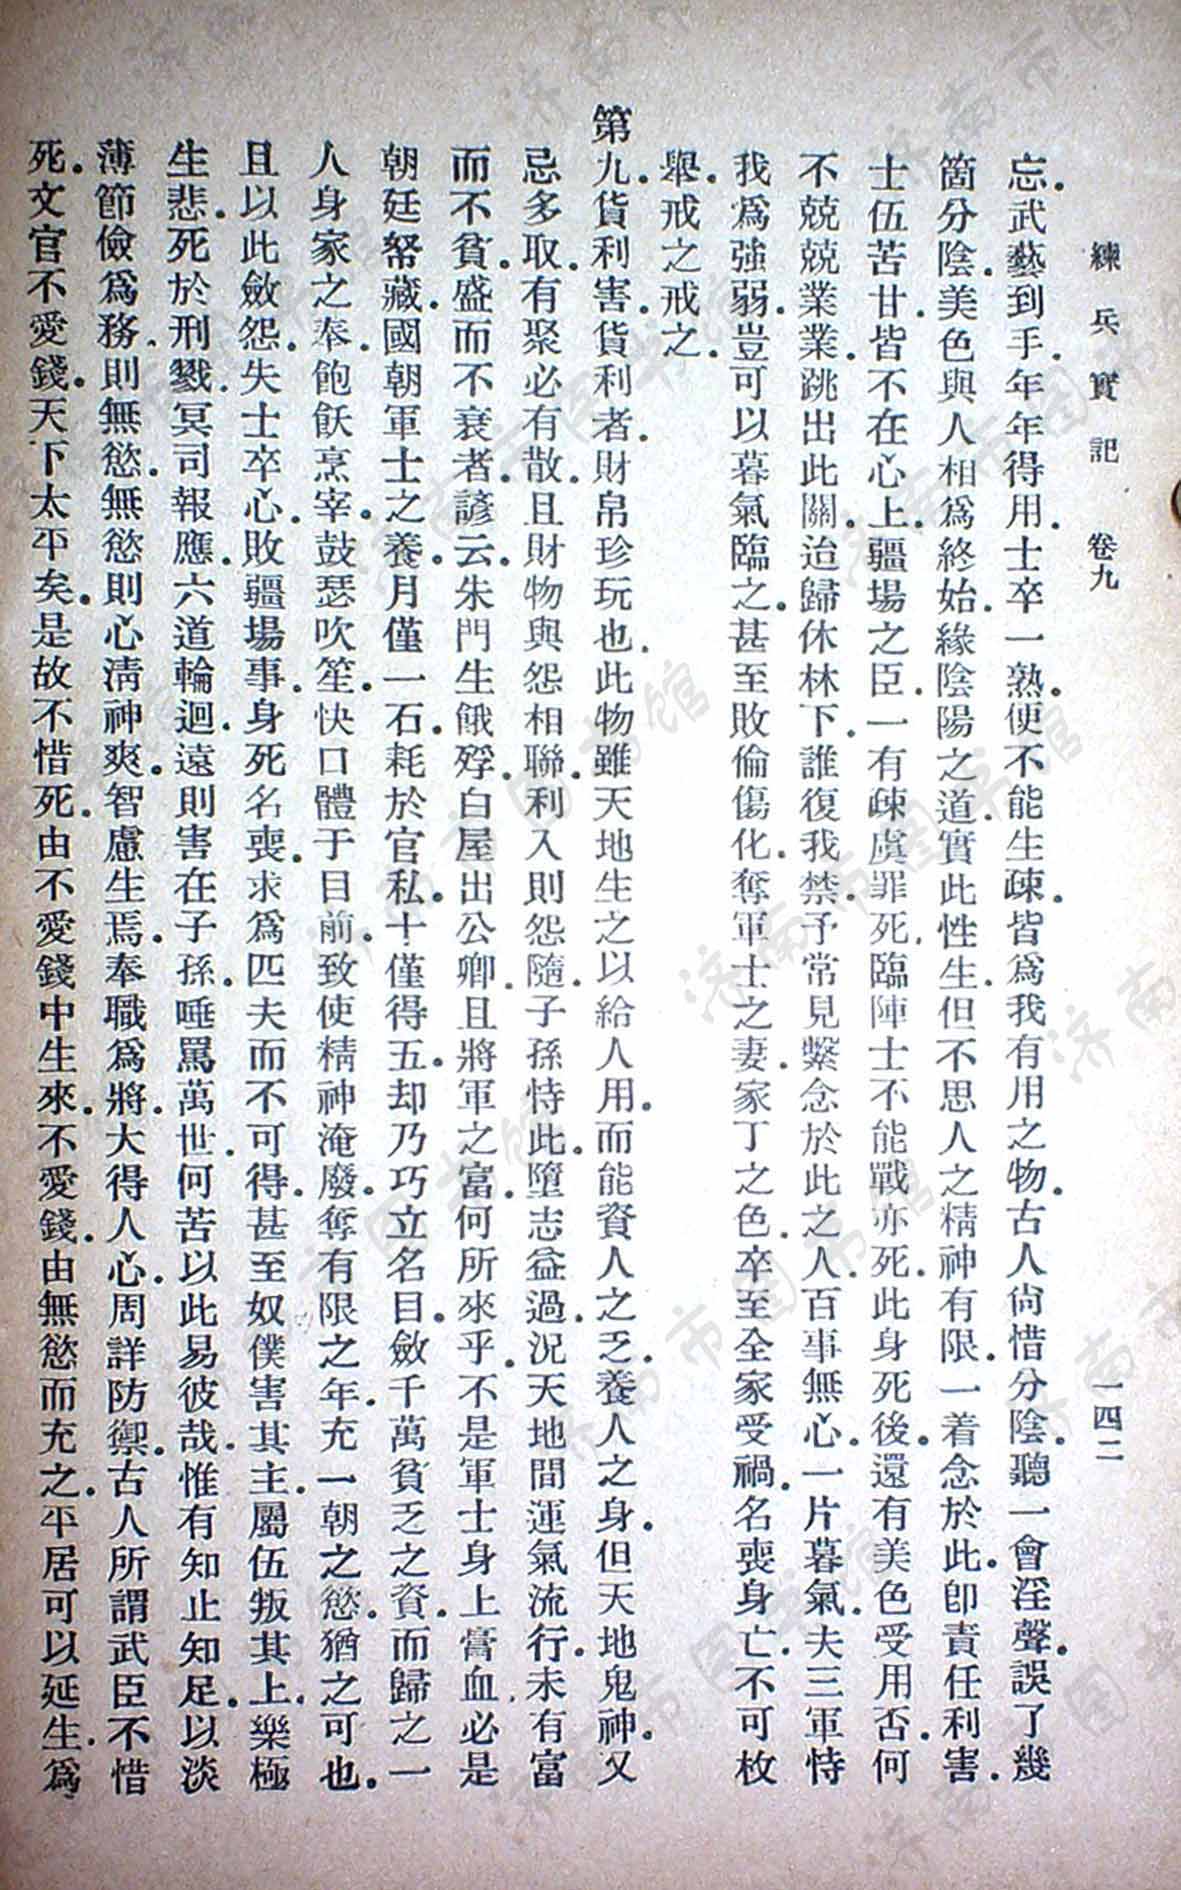 練兵實記 卷九 一四二
忘。武藝到手。年年得用。士卒一熟。便不能生疎。皆爲我有用之物。古人尙惜分陰。聽一會淫聲。誤了幾
箇分陰。美色與人相爲終始。緣陰陽之道。實此性生。但不思人之精神有限。一着念於此。卽責任利害。
士伍苦甘。皆不在心上。疆場之臣。一有疎虞罪死。臨陣士不能戰亦死。此身死後。還有美色受用否。何
不兢兢業業。跳出此關。迨歸休林下。誰復我禁。予常見繫念於此之人。百事無心。一片暮氣。夫三軍恃
我爲強弱。豈可以暮氣臨之。甚至敗倫傷化。奪軍士之妻。家丁之色。卒至全家受禍。名喪身亡。不可枚
舉。戒之戒之。
第九貨利害。貨利者。財帛珍玩也。此物雖天地生之以給人用。而能資人之乏。養人之身。但天地鬼神。又
忌多取。有聚必有散。且財物與怨相聯。利入則怨隨。子孫恃此。墮志益過。況天地間運氣流行。未有富
而不貧。盛而不衰者。諺云。朱門生餓殍。白屋出公卿。且將軍之富。何所來乎。不是軍士身上膏血。必是
朝廷帑藏。國朝軍士之養。月僅一石。耗於官私。十僅得五。却乃巧立名目。斂千萬貧乏之資。而歸之一
人身家之奉。飽飫烹宰。鼓瑟吹笙。快口體于目前。致使精神淹廢。奪有限之年。充一朝之慾。猶之可也。
且以此斂怨。失士卒心。敗疆場事。身死名喪。求爲匹夫而不可得。甚至奴僕害其主。屬伍叛其上。樂極
生悲。死於刑戮。冥司報應。六道輪迴。遠則害在子孫。唾罵萬世。何苦以此易彼哉。惟有知止知足。以淡
薄節儉爲務。則無慾。無慾則心淸神爽。智慮生焉。奉職爲將。大得人心。周詳防禦。古人所謂武臣不惜
死。文官不愛錢。天下太平矣。是故不惜死。由不愛錢中生來。不愛錢。由無慾而充之。平居可以延生。爲
济南市图书馆